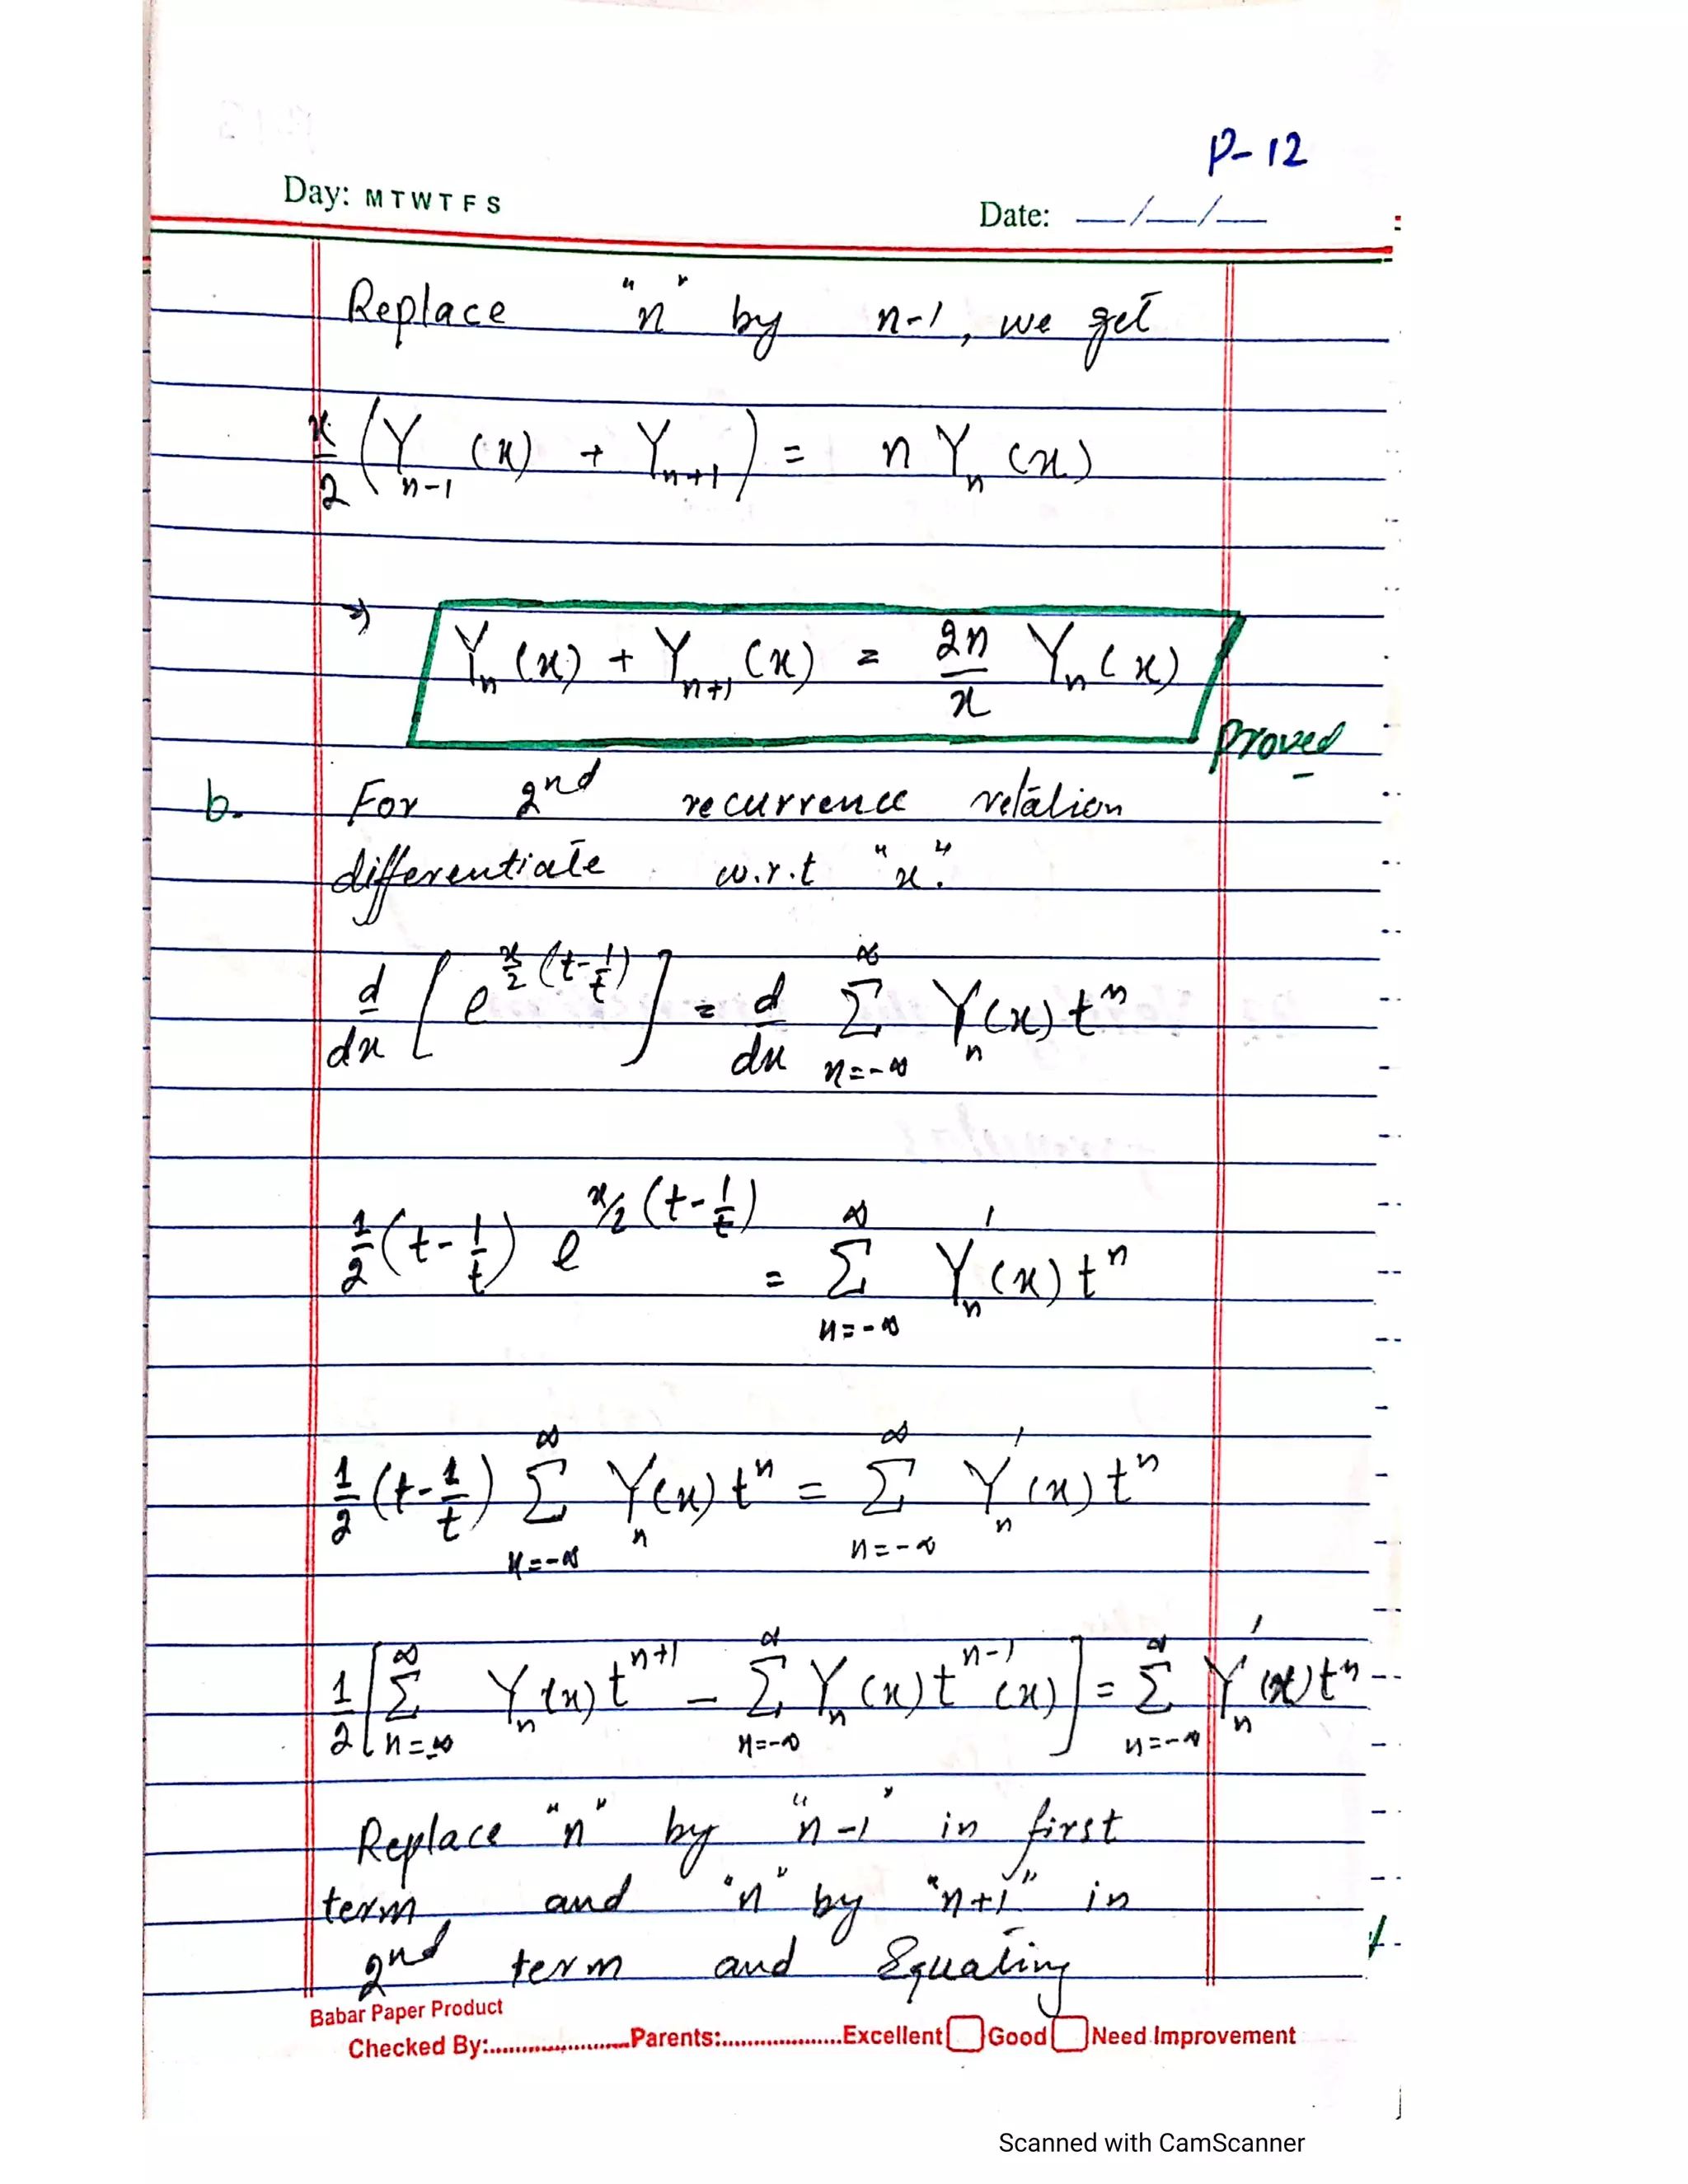 P-12
Day: M T W T F S
Date: __/__/__
Replace "n" by n-1, we get
x/2 (Y_{n-1}(x) + Y_{n+1}) = n Y_n(x)
⇒ Y_n(x) + Y_{n+1}(x) = 2n/x Y_n(x)
proved
b. For 2nd recurrence relation
differentiate w.r.t "x".
d/dx [e^{x/2 (t-1/t)}] = d/dx ∑_{n=-∞}^{∞} Y_n(x) t^n
1/2 (t-1/t) e^{x/2 (t-1/t)} = ∑_{n=-∞}^{∞} Y'_n(x) t^n
1/2 (t-1/t) ∑_{n=-∞}^{∞} Y_n(x) t^n = ∑_{n=-∞}^{∞} Y'_n(x) t^n
1/2 [∑_{n=-∞}^{∞} Y_n(x) t^{n+1} - ∑_{n=-∞}^{∞} Y_n(x) t^{n-1}(x)] = ∑_{n=-∞}^{∞} Y'_n(x) t^n
Replace "n" by "n-1" in first
term, and "n" by "n+1" in
2nd term and Equating
Babar Paper Product
Checked By:........................Parents:.....................Excellent □ Good □ Need Improvement
Scanned with CamScanner